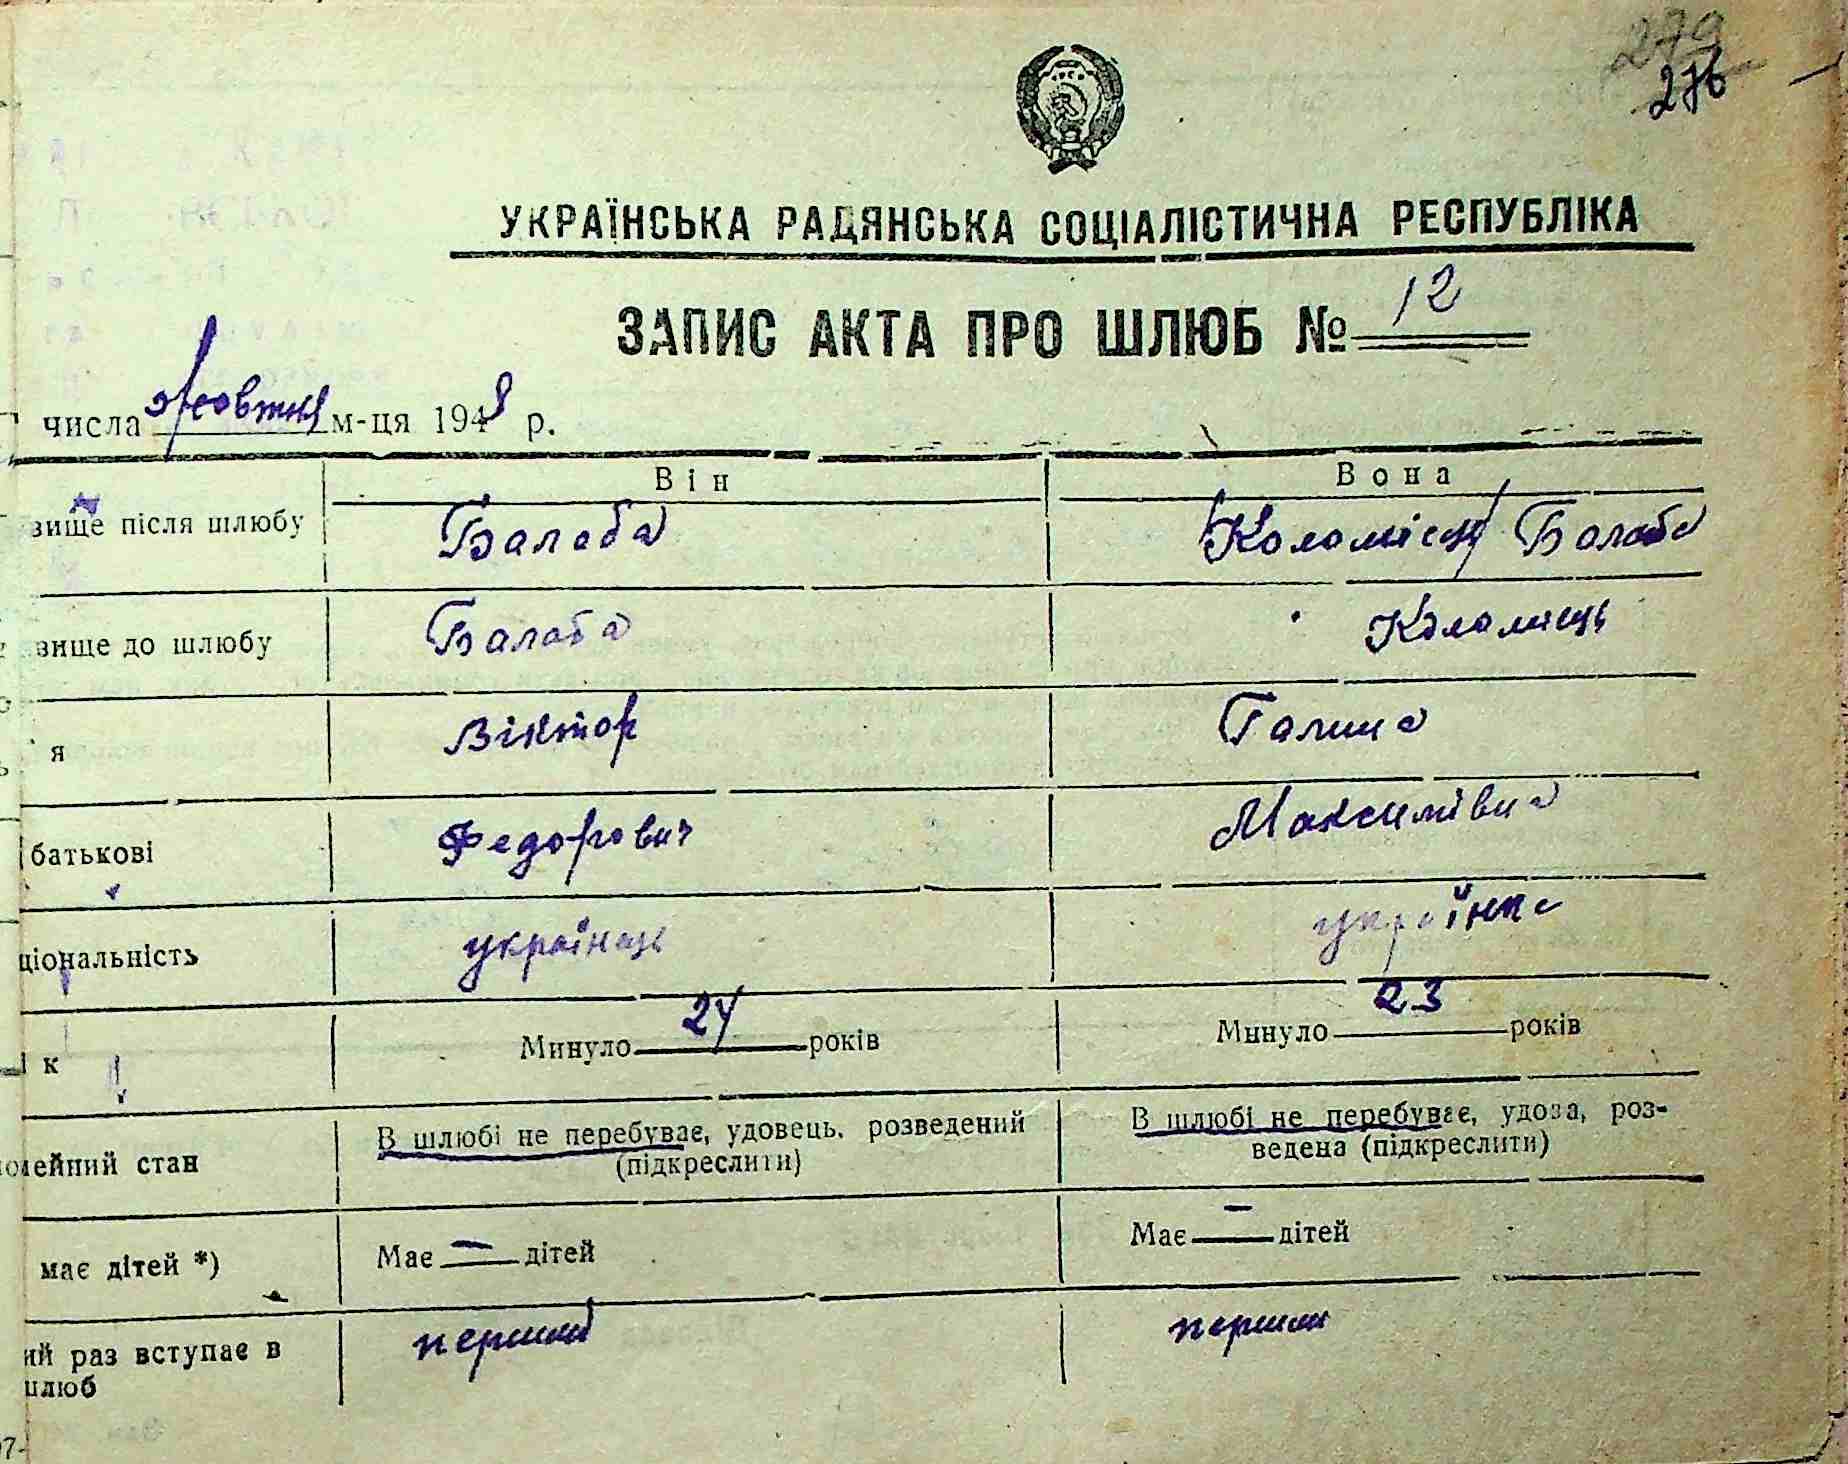 279
276
УКРАЇНСЬКА РАДЯНСЬКА СОЦІАЛІСТИЧНА РЕСПУБЛІКА
ЗАПИС АКТА ПРО ШЛЮБ № 12
числа жовтня м-ця 1948 р.
Він Вона
звище після шлюбу Балаба (Коломієць) Балаба
звище до шлюбу Балаба Коломієць
я Віктор Галина
батькові Федорович Максимівна
ціональність українець українка
к Минуло 24 років Минуло 23 років
мейний стан В шлюбі не перебуває, удовець, розведений (підкреслити) В шлюбі не перебуває, удова, роз-
ведена (підкреслити)
має дітей *) Має — дітей Має — дітей
ий раз вступає в перший перший
шлюб